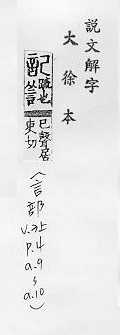 說文解字
大徐本
記疏也从言己聲居
吏切
(言部
v.3上
p.4
a.9
~
a.10)